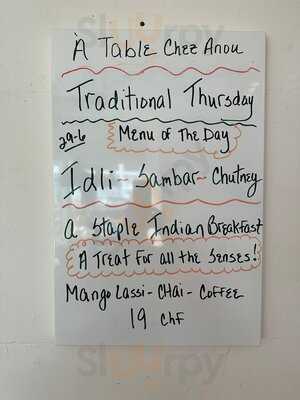 À Table Chez Anou
Traditional Thursday
29-6
Menu of The Day
Idli - Sambar - Chutney
a Staple Indian Breakfast
A Treat for all the Senses!
Mango Lassi - CHai - Coffee
19 chf
Sluurpy
Sluurpy
Sluurpy